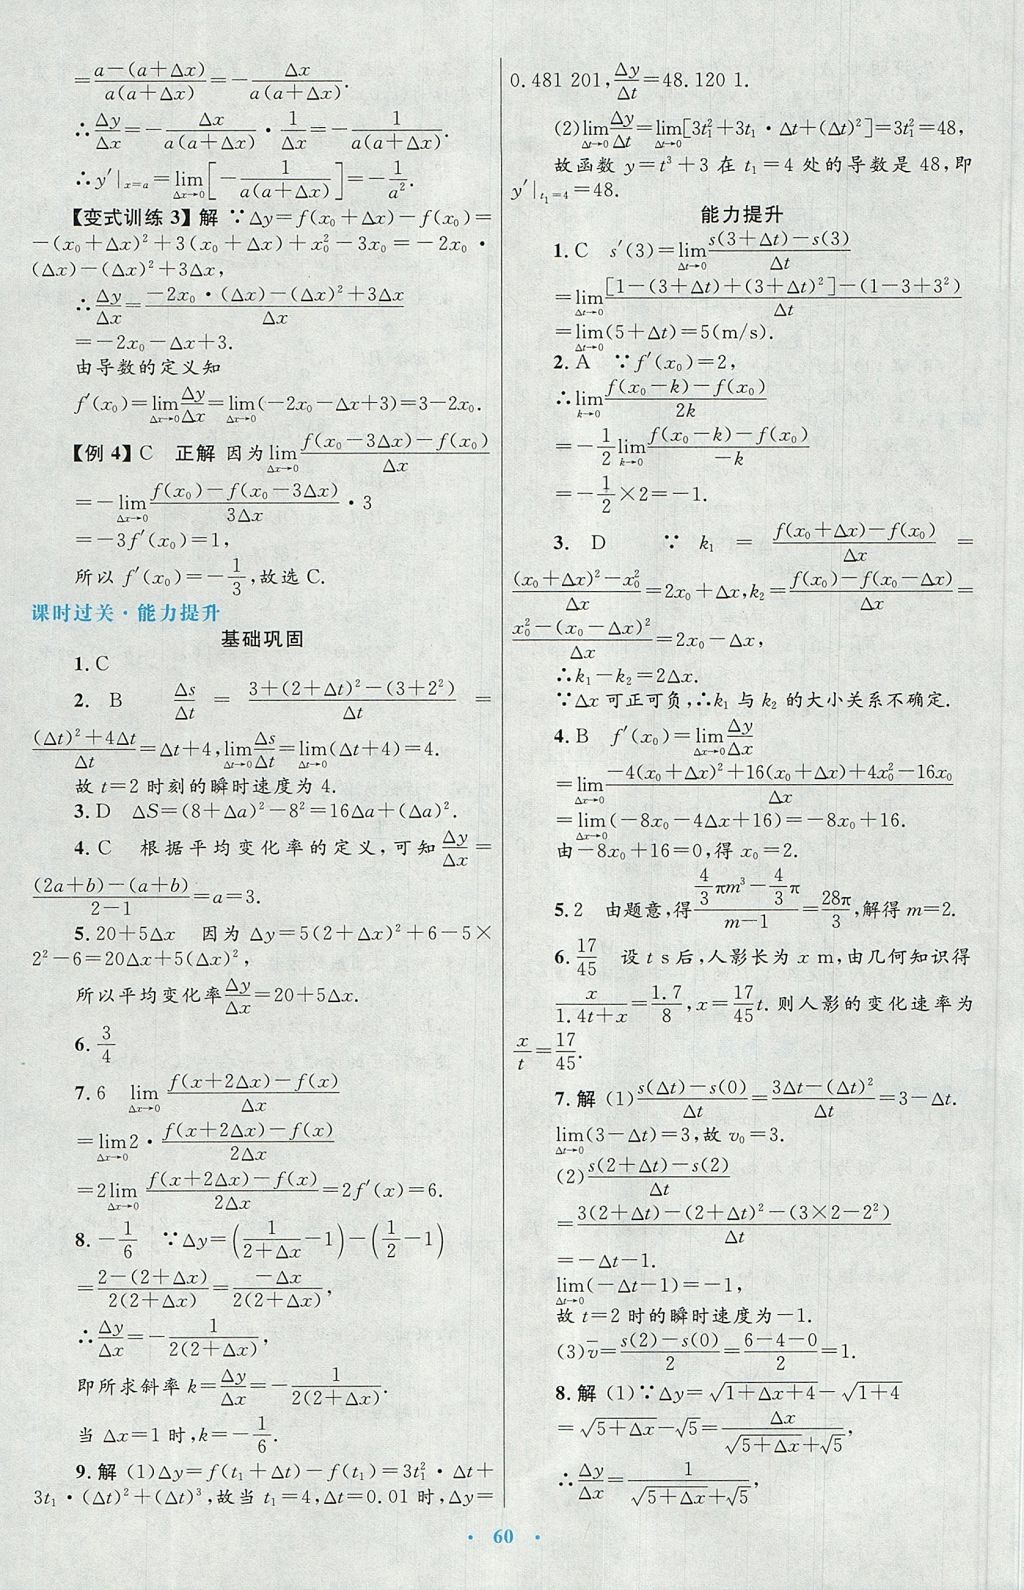 =\frac{a-(a+Δx)}{a(a+Δx)}=-\frac{Δx}{a(a+Δx)}.
∴\frac{Δy}{Δx}=-\frac{Δx}{a(a+Δx)}·\frac{1}{Δx}=-\frac{1}{a(a+Δx)}.
∴y′|_{x=a}=\lim_{Δx→0}[-\frac{1}{a(a+Δx)}]=-\frac{1}{a^2}.
【变式训练3】解 ∵Δy=f(x_0+Δx)-f(x_0)=
-(x_0+Δx)^2+3(x_0+Δx)+x_0^2-3x_0=-2x_0·
(Δx)-(Δx)^2+3Δx,
∴\frac{Δy}{Δx}=\frac{-2x_0·(Δx)-(Δx)^2+3Δx}{Δx}
=-2x_0-Δx+3.
由导数的定义知
f′(x_0)=\lim_{Δx→0}\frac{Δy}{Δx}=\lim_{Δx→0}(-2x_0-Δx+3)=3-2x_0.
【例4】C 正解 因为\lim_{Δx→0}\frac{f(x_0-3Δx)-f(x_0)}{Δx}
=-\lim_{Δx→0}\frac{f(x_0)-f(x_0-3Δx)}{3Δx}·3
=-3f′(x_0)=1,
所以 f′(x_0)=-\frac{1}{3},故选C.
课时过关·能力提升
基础巩固
1.C
2. B \frac{Δs}{Δt} = \frac{3+(2+Δt)^2-(3+2^2)}{Δt} =
\frac{(Δt)^2+4Δt}{Δt}=Δt+4,\lim_{Δt→0}\frac{Δs}{Δt}=\lim_{Δt→0}(Δt+4)=4.
故 t=2 时刻的瞬时速度为 4.
3. D ΔS=(8+Δa)^2-8^2=16Δa+(Δa)^2.
4. C 根据平均变化率的定义,可知\frac{Δy}{Δx}=
\frac{(2a+b)-(a+b)}{2-1}=a=3.
5.20+5Δx 因为 Δy=5(2+Δx)^2+6-5×
2^2-6=20Δx+5(Δx)^2,
所以平均变化率\frac{Δy}{Δx}=20+5Δx.
6.\frac{3}{4}
7.6 \lim_{Δx→0}\frac{f(x+2Δx)-f(x)}{Δx}
=\lim_{Δx→0}2·\frac{f(x+2Δx)-f(x)}{2Δx}
=2\lim_{Δx→0}\frac{f(x+2Δx)-f(x)}{2Δx}=2f′(x)=6.
8.-\frac{1}{6} ∵Δy=(\frac{1}{2+Δx}-1)-(\frac{1}{2}-1)
=\frac{2-(2+Δx)}{2(2+Δx)}=\frac{-Δx}{2(2+Δx)},
∴\frac{Δy}{Δx}=-\frac{1}{2(2+Δx)},
即所求斜率 k=\frac{Δy}{Δx}=-\frac{1}{2(2+Δx)}.
当 Δx=1 时,k=-\frac{1}{6}.
9.解 (1)Δy=f(t_1+Δt)-f(t_1)=3t_1^2·Δt+
3t_1·(Δt)^2+(Δt)^3,故当 t_1=4,Δt=0.01 时,Δy=
0.481 201,\frac{Δy}{Δt}=48.120 1.
(2)\lim_{Δt→0}\frac{Δy}{Δt}=\lim_{Δt→0}[3t_1^2+3t_1·Δt+(Δt)^2]=3t_1^2=48,
故函数 y=t^3+3 在 t_1=4 处的导数是 48,即
y′|_{t_1=4}=48.
能力提升
1.C s′(3)=\lim_{Δt→0}\frac{s(3+Δt)-s(3)}{Δt}
=\lim_{Δt→0}\frac{[1-(3+Δt)+(3+Δt)^2]-(1-3+3^2)}{Δt}
=\lim_{Δt→0}(5+Δt)=5(m/s).
2. A ∵f′(x_0)=2,
∴\lim_{k→0}\frac{f(x_0-k)-f(x_0)}{2k}
=-\frac{1}{2}\lim_{k→0}\frac{f(x_0-k)-f(x_0)}{-k}
=-\frac{1}{2}×2=-1.
3. D ∵ k_1 = \frac{f(x_0+Δx)-f(x_0)}{Δx} =
\frac{(x_0+Δx)^2-x_0^2}{Δx}=2x_0+Δx,k_2=\frac{f(x_0)-f(x_0-Δx)}{Δx}=
\frac{x_0^2-(x_0-Δx)^2}{Δx}=2x_0-Δx,
∴k_1-k_2=2Δx.
∵Δx 可正可负,∴k_1 与 k_2 的大小关系不确定.
4. B f′(x_0)=\lim_{Δx→0}\frac{Δy}{Δx}
=\lim_{Δx→0}\frac{-4(x_0+Δx)^2+16(x_0+Δx)+4x_0^2-16x_0}{Δx}
=\lim_{Δx→0}(-8x_0-4Δx+16)=-8x_0+16.
由-8x_0+16=0,得 x_0=2.
5.2 由题意,得\frac{\frac{4}{3}πm^3-\frac{4}{3}π}{m-1}=\frac{28π}{3},解得 m=2.
6.\frac{17}{45} 设 t s后,人影长为 x m,由几何知识得
\frac{x}{1.4t+x}=\frac{1.7}{8},x=\frac{17}{45}t. 则人影的变化速率为
\frac{x}{t}=\frac{17}{45}.
7.解 (1)\frac{s(Δt)-s(0)}{Δt}=\frac{3Δt-(Δt)^2}{Δt}=3-Δt.
\lim_{Δt→0}(3-Δt)=3,故 v_0=3.
(2)\frac{s(2+Δt)-s(2)}{Δt}
=\frac{3(2+Δt)-(2+Δt)^2-(3×2-2^2)}{Δt}
=-Δt-1.
\lim_{Δt→0}(-Δt-1)=-1,
故 t=2 时的瞬时速度为-1.
(3)\bar{v}=\frac{s(2)-s(0)}{2}=\frac{6-4-0}{2}=1.
8.解 (1)∵Δy=\sqrt{1+Δx+4}-\sqrt{1+4}
=\sqrt{5+Δx}-\sqrt{5}=\frac{Δx}{\sqrt{5+Δx}+\sqrt{5}},
∴\frac{Δy}{Δx}=\frac{1}{\sqrt{5+Δx}+\sqrt{5}},
· 60 ·